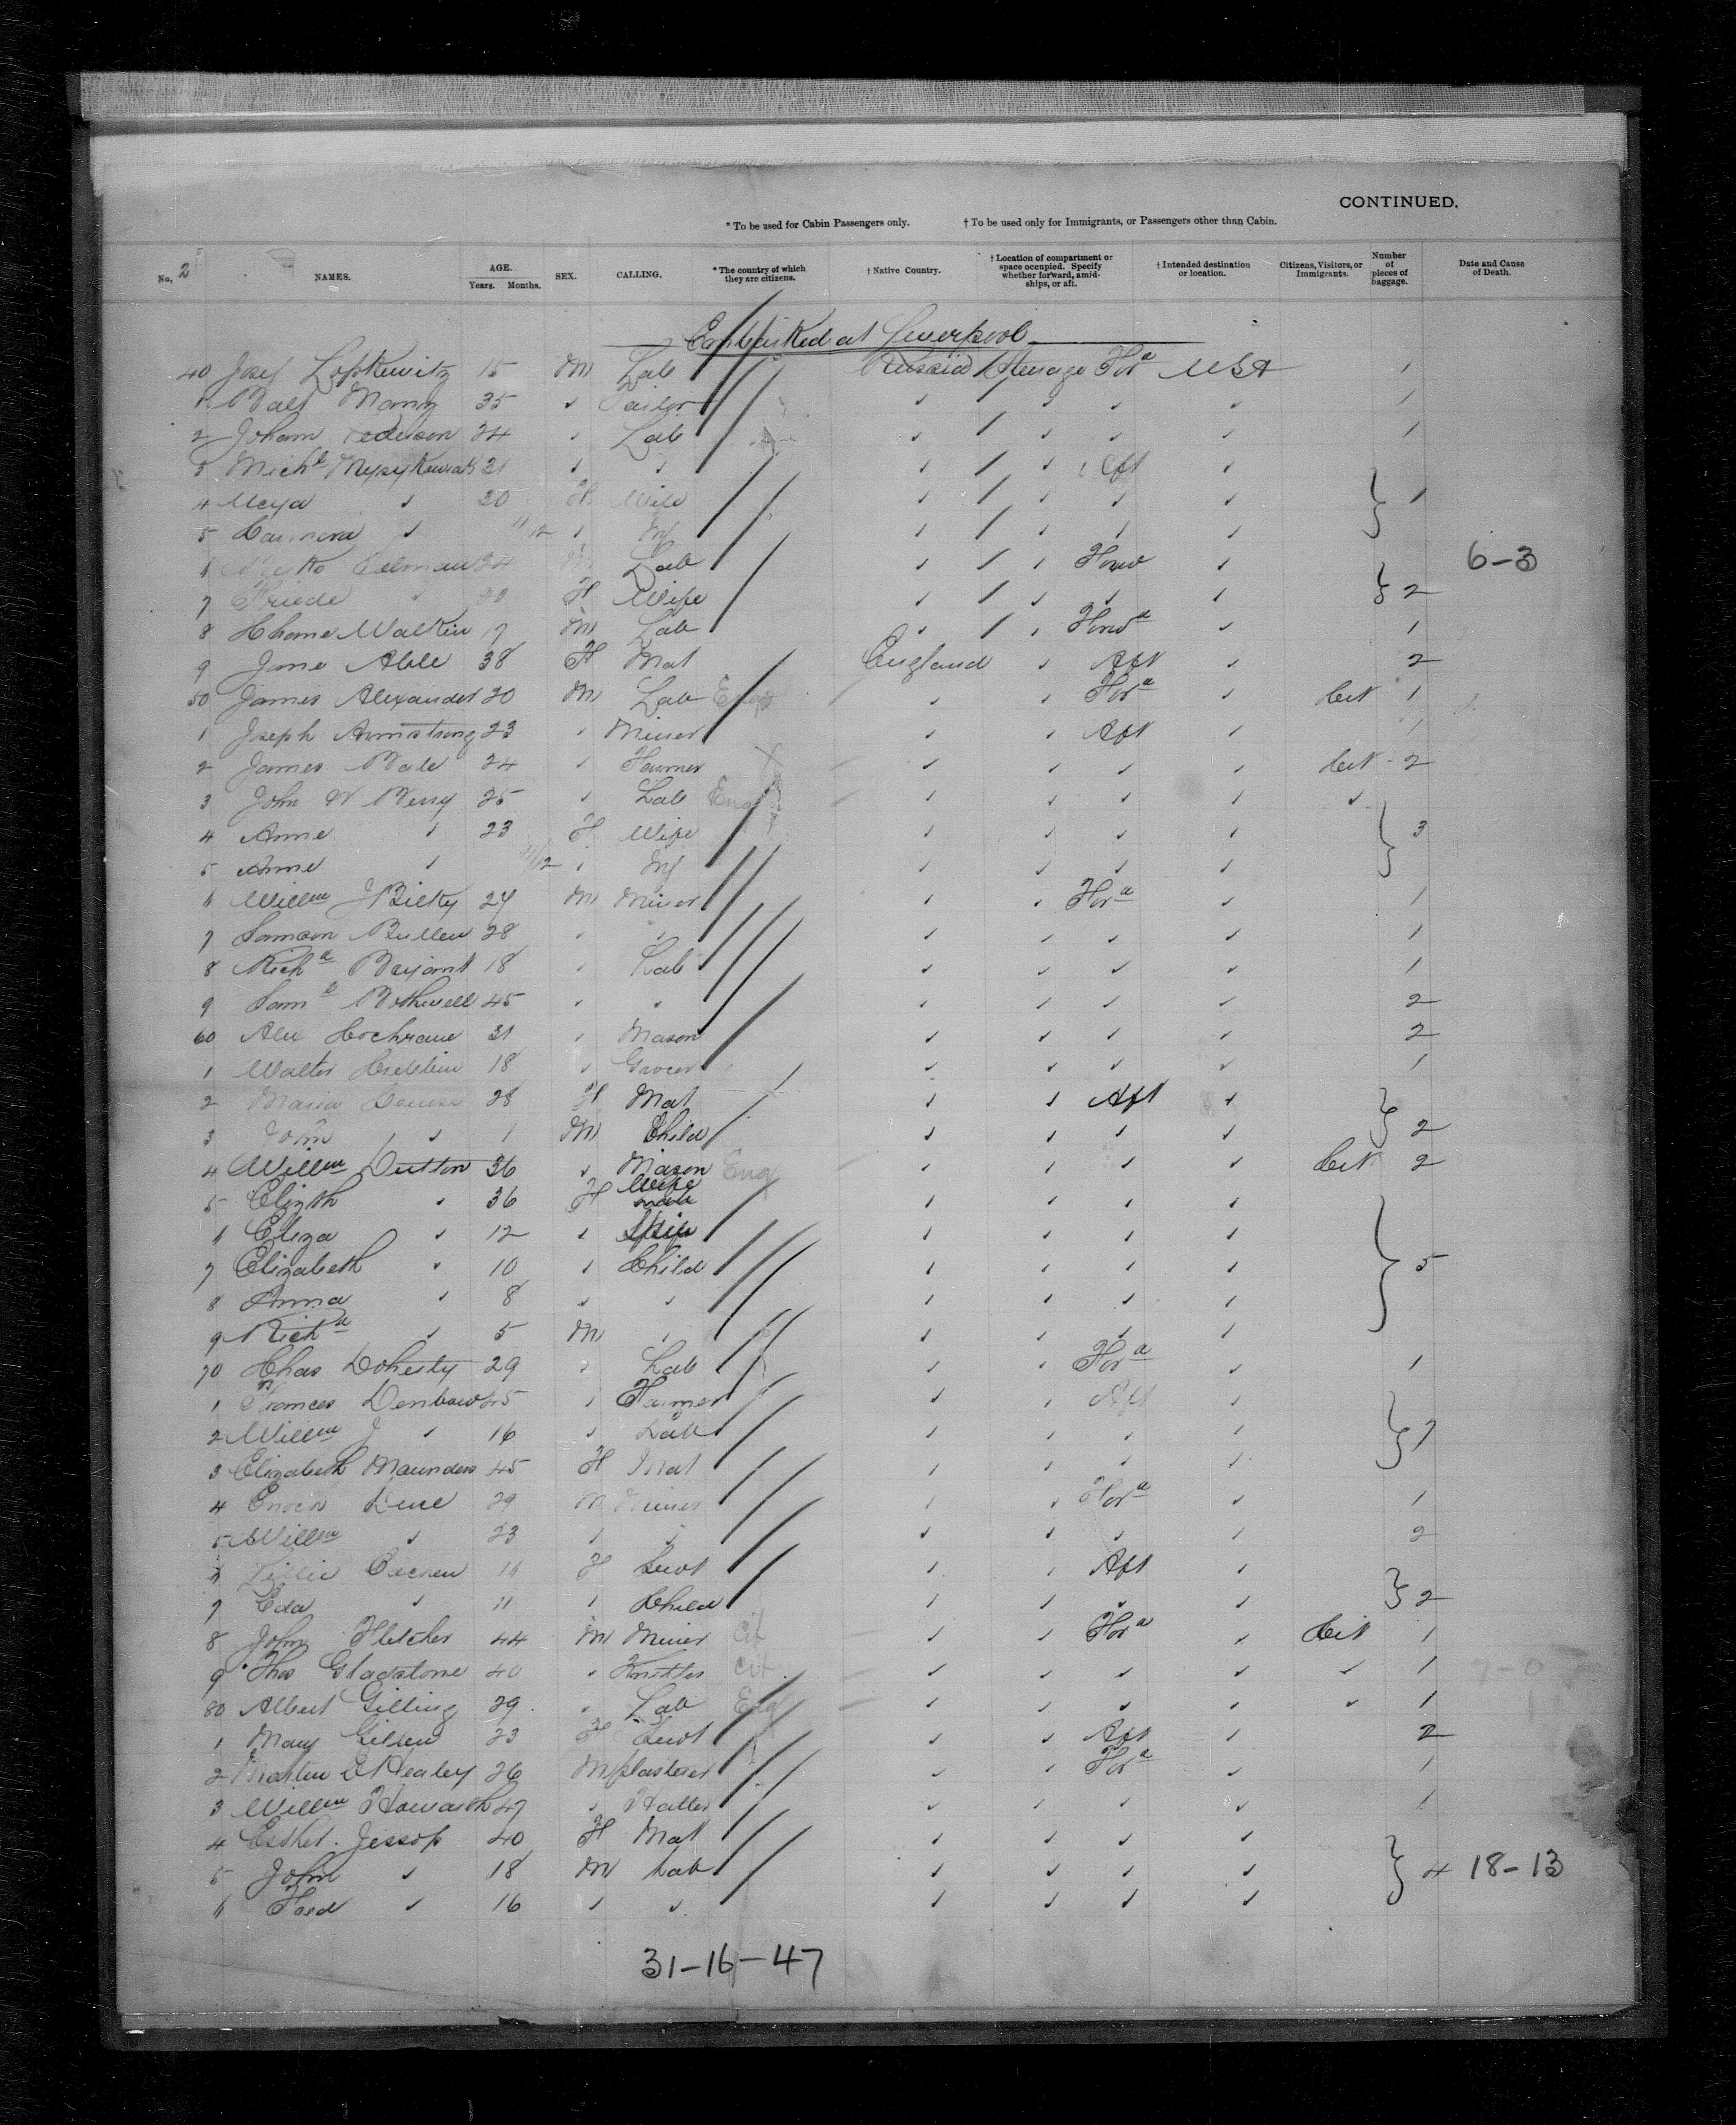 CONTINUED.
* To be used for Cabin Passengers only. † To be used only for Immigrants, or Passengers other than Cabin.
No. 2 NAMES. AGE. Years. Months. SEX. CALLING. * The country of which they are citizens. † Native Country. † Location of compartment or space occupied. Specify whether forward, amid-ships, or aft. † Intended destination or location. Citizens, Visitors, or Immigrants. Number of pieces of baggage. Date and Cause of Death.
Embarked at Liverpool
40 Josef 15 M Lab Russia Steerage For^d USA 1
1 35 ✓ Tailor ✓ ✓ ✓ ✓ 1
2 Johann 24 ✓ Lab ✓ ✓ ✓ ✓ 1
3 Mich^l 21 ✓ ✓ ✓ ✓ Aft ✓
4 ✓ 20 F Wife ✓ ✓ ✓ ✓ 1
5 ✓ 11/12 ✓ Inf ✓ ✓ ✓ ✓
6 24 M Lab ✓ ✓ Forw ✓ 6-3
7 ✓ F Wife ✓ ✓ ✓ ✓ 2
8 17 M Lab ✓ ✓ Forw^d ✓ 1
9 Jane Able 38 F Mat England ✓ Aft ✓ 2
50 James Alexander 20 M Lab Eng ✓ ✓ For^d ✓ Cit 1
1 Joseph Armstrong 23 ✓ Miner ✓ ✓ Aft ✓ 1
2 James Bale 24 ✓ Farmer ✓ ✓ ✓ ✓ Cit 2
3 John W Berry 25 ✓ Lab Eng ✓ ✓ ✓ ✓ ✓
4 Anne ✓ 23 F Wife ✓ ✓ ✓ ✓ 3
5 Anne ✓ /12 ✓ Inf ✓ ✓ ✓ ✓
6 Will^m J 24 M Miner ✓ ✓ For^d ✓ 1
7 Samson Bullen 28 ✓ ✓ ✓ ✓ ✓ ✓ 1
8 Rich^d 18 ✓ Lab ✓ ✓ ✓ ✓ 1
9 Sam^l Bothwell 45 ✓ ✓ ✓ ✓ ✓ ✓ 2
60 Alex Cochrane 31 ✓ Mason ✓ ✓ ✓ ✓ 2
1 Walter 18 ✓ Grocer ✓ ✓ ✓ ✓ 1
2 Maria 28 F Mat ✓ ✓ Aft ✓
3 John ✓ 1 M Child ✓ ✓ ✓ ✓ 2
4 Will^m Dutton 36 ✓ Mason Eng ✓ ✓ ✓ ✓ Cit 2
5 Elizth ✓ 36 F Wife ✓ ✓ ✓ ✓
6 Eliza ✓ 12 ✓ Spin ✓ ✓ ✓ ✓
7 Elizabeth ✓ 10 ✓ Child ✓ ✓ ✓ ✓ 5
8 Anna ✓ 8 ✓ ✓ ✓ ✓ ✓ ✓
9 Rich^d ✓ 5 M ✓ ✓ ✓ ✓ ✓
70 Chas Doherty 29 ✓ Lab ✓ ✓ For^d ✓ 1
1 Frances Denbow 45 ✓ Farmer ✓ ✓ Aft ✓
2 Will^m J ✓ 16 ✓ Lab ✓ ✓ ✓ ✓ 7
3 Elizabeth Maunders 45 F Mat ✓ ✓ ✓ ✓
4 Enoch 29 M Miner ✓ ✓ For^d ✓ 1
5 Will^m ✓ 23 ✓ ✓ ✓ ✓ ✓ ✓ 2
6 Lillie F Servt ✓ ✓ Aft ✓
7 Eda ✓ 11 ✓ Child ✓ ✓ ✓ ✓ 2
8 John Fletcher 44 M Miner Cit ✓ ✓ For^d ✓ Cit 1
9 Thos Gladstone 40 ✓ Knitter Cit ✓ ✓ ✓ ✓ ✓ 1 7-0
80 Albert Gilling 29 ✓ Lab Eng ✓ ✓ ✓ ✓ ✓ 1
1 Mary 23 F Servt ✓ ✓ Aft ✓ 2
2 Martin Healey 26 M plasterer ✓ ✓ For^d ✓ 1
3 Will^m Howarth 47 ✓ Hatter ✓ ✓ ✓ ✓ 1
4 Esther Jessop 40 F Mat ✓ ✓ ✓ ✓
5 John ✓ 18 M Lab ✓ ✓ ✓ ✓ 4 18-13
6 Fred ✓ 16 ✓ ✓ ✓ ✓ ✓ ✓
31-16-47